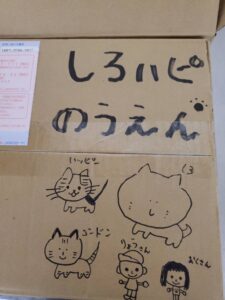 しろハピ
のうえん
ハッピー
しろ
ゴンドン
りょうさん
おくさん